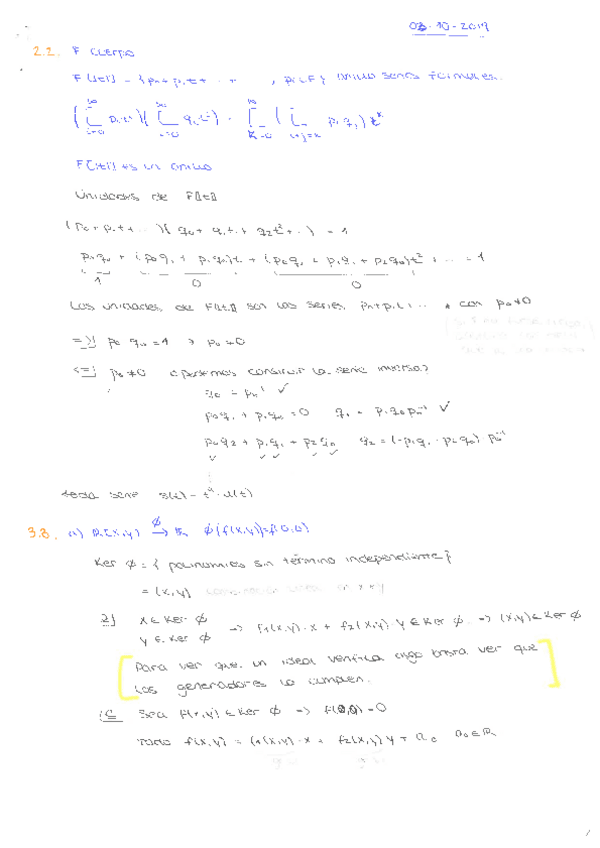 03-10-2019
2.2. F cuerpo
F[[t]] = {p₀ + p₁t + ... , pᵢ ∈ F} anillo series formales.
(∑_{i=0}^{∞} pᵢtⁱ)(∑_{i=0}^{∞} qᵢtⁱ) = ∑_{k=0}^{∞} (∑_{i+j=k} pᵢqⱼ) tᵏ
F[[t]] es un anillo
Unidades de F[[t]]
(p₀ + p₁t + ...)(q₀ + q₁t + q₂t² + ...) = 1
p₀q₀ + (p₀q₁ + p₁q₀)t + (p₀q₂ + p₁q₁ + p₂q₀)t² + ... = 1
1 0 0
Las unidades de F[[t]] son las series p₀ + p₁t + ... con p₀ ≠ 0
=>) p₀q₀ = 1 → p₀ ≠ 0
<=) p₀ ≠ 0 ¿podemos construir la serie inversa?
q₀ = p₀⁻¹ ✓
p₀q₁ + p₁q₀ = 0 q₁ = -p₁q₀p₀⁻¹ ✓
p₀q₂ + p₁q₁ + p₂q₀ q₂ = (-p₁q₁ - p₂q₀) p₀⁻¹
toda serie s(t) = tⁿ · u(t)
3.3. (a) R[x,y] →^ϕ R ϕ(f(x,y)) = f(0,0)
Ker ϕ = { polinomios sin término independiente }
= (x,y)
⊇) x ∈ Ker ϕ
y ∈ Ker ϕ → f₁(x,y)·x + f₂(x,y) y ∈ Ker ϕ → (x,y) ⊆ Ker ϕ
Para ver que un ideal verifica algo basta ver que
los generadores lo cumplen.
⊆) Sea f(x,y) ∈ Ker ϕ → f(0,0) = 0
Todo f(x,y) = f₁(x,y)·x + f₂(x,y) y + a₀ a₀ ∈ R